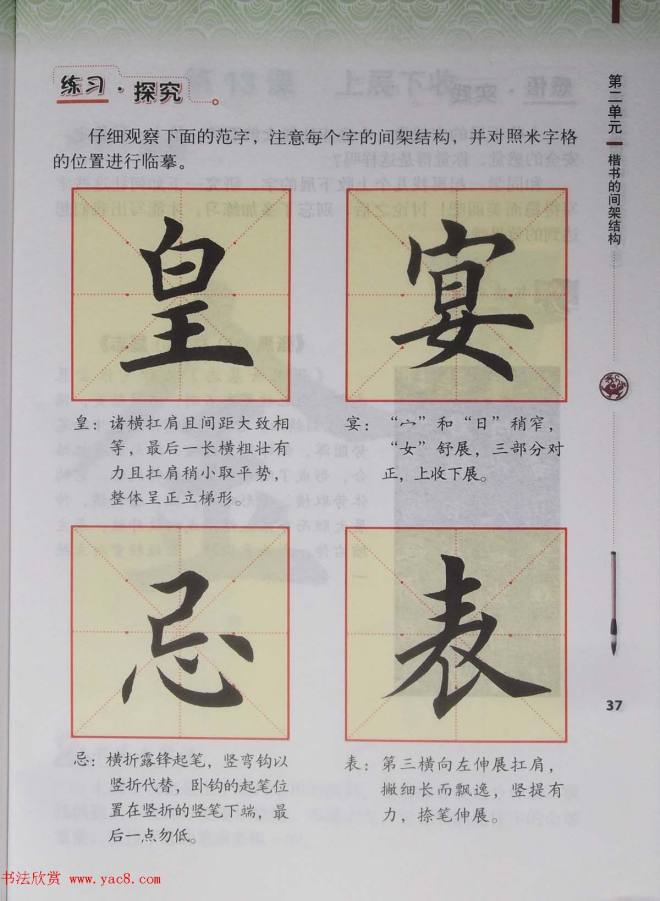 练习·探究
仔细观察下面的范字，注意每个字的间架结构，并对照米字格
的位置进行临摹。
皇
宴
皇：诸横扛肩且间距大致相
等，最后一长横粗壮有
力且扛肩稍小取平势，
整体呈正立梯形。
宴：“宀”和“日”稍窄，
“女”舒展，三部分对
正，上收下展。
忌
表
忌：横折露锋起笔，竖弯钩以
竖折代替，卧钩的起笔位
置在竖折的竖笔下端，最
后一点勿低。
表：第三横向左伸展扛肩，
撇细长而飘逸，竖提有
力，捺笔伸展。
第二单元
楷书的间架结构
37
书法欣赏 www.yac8.com